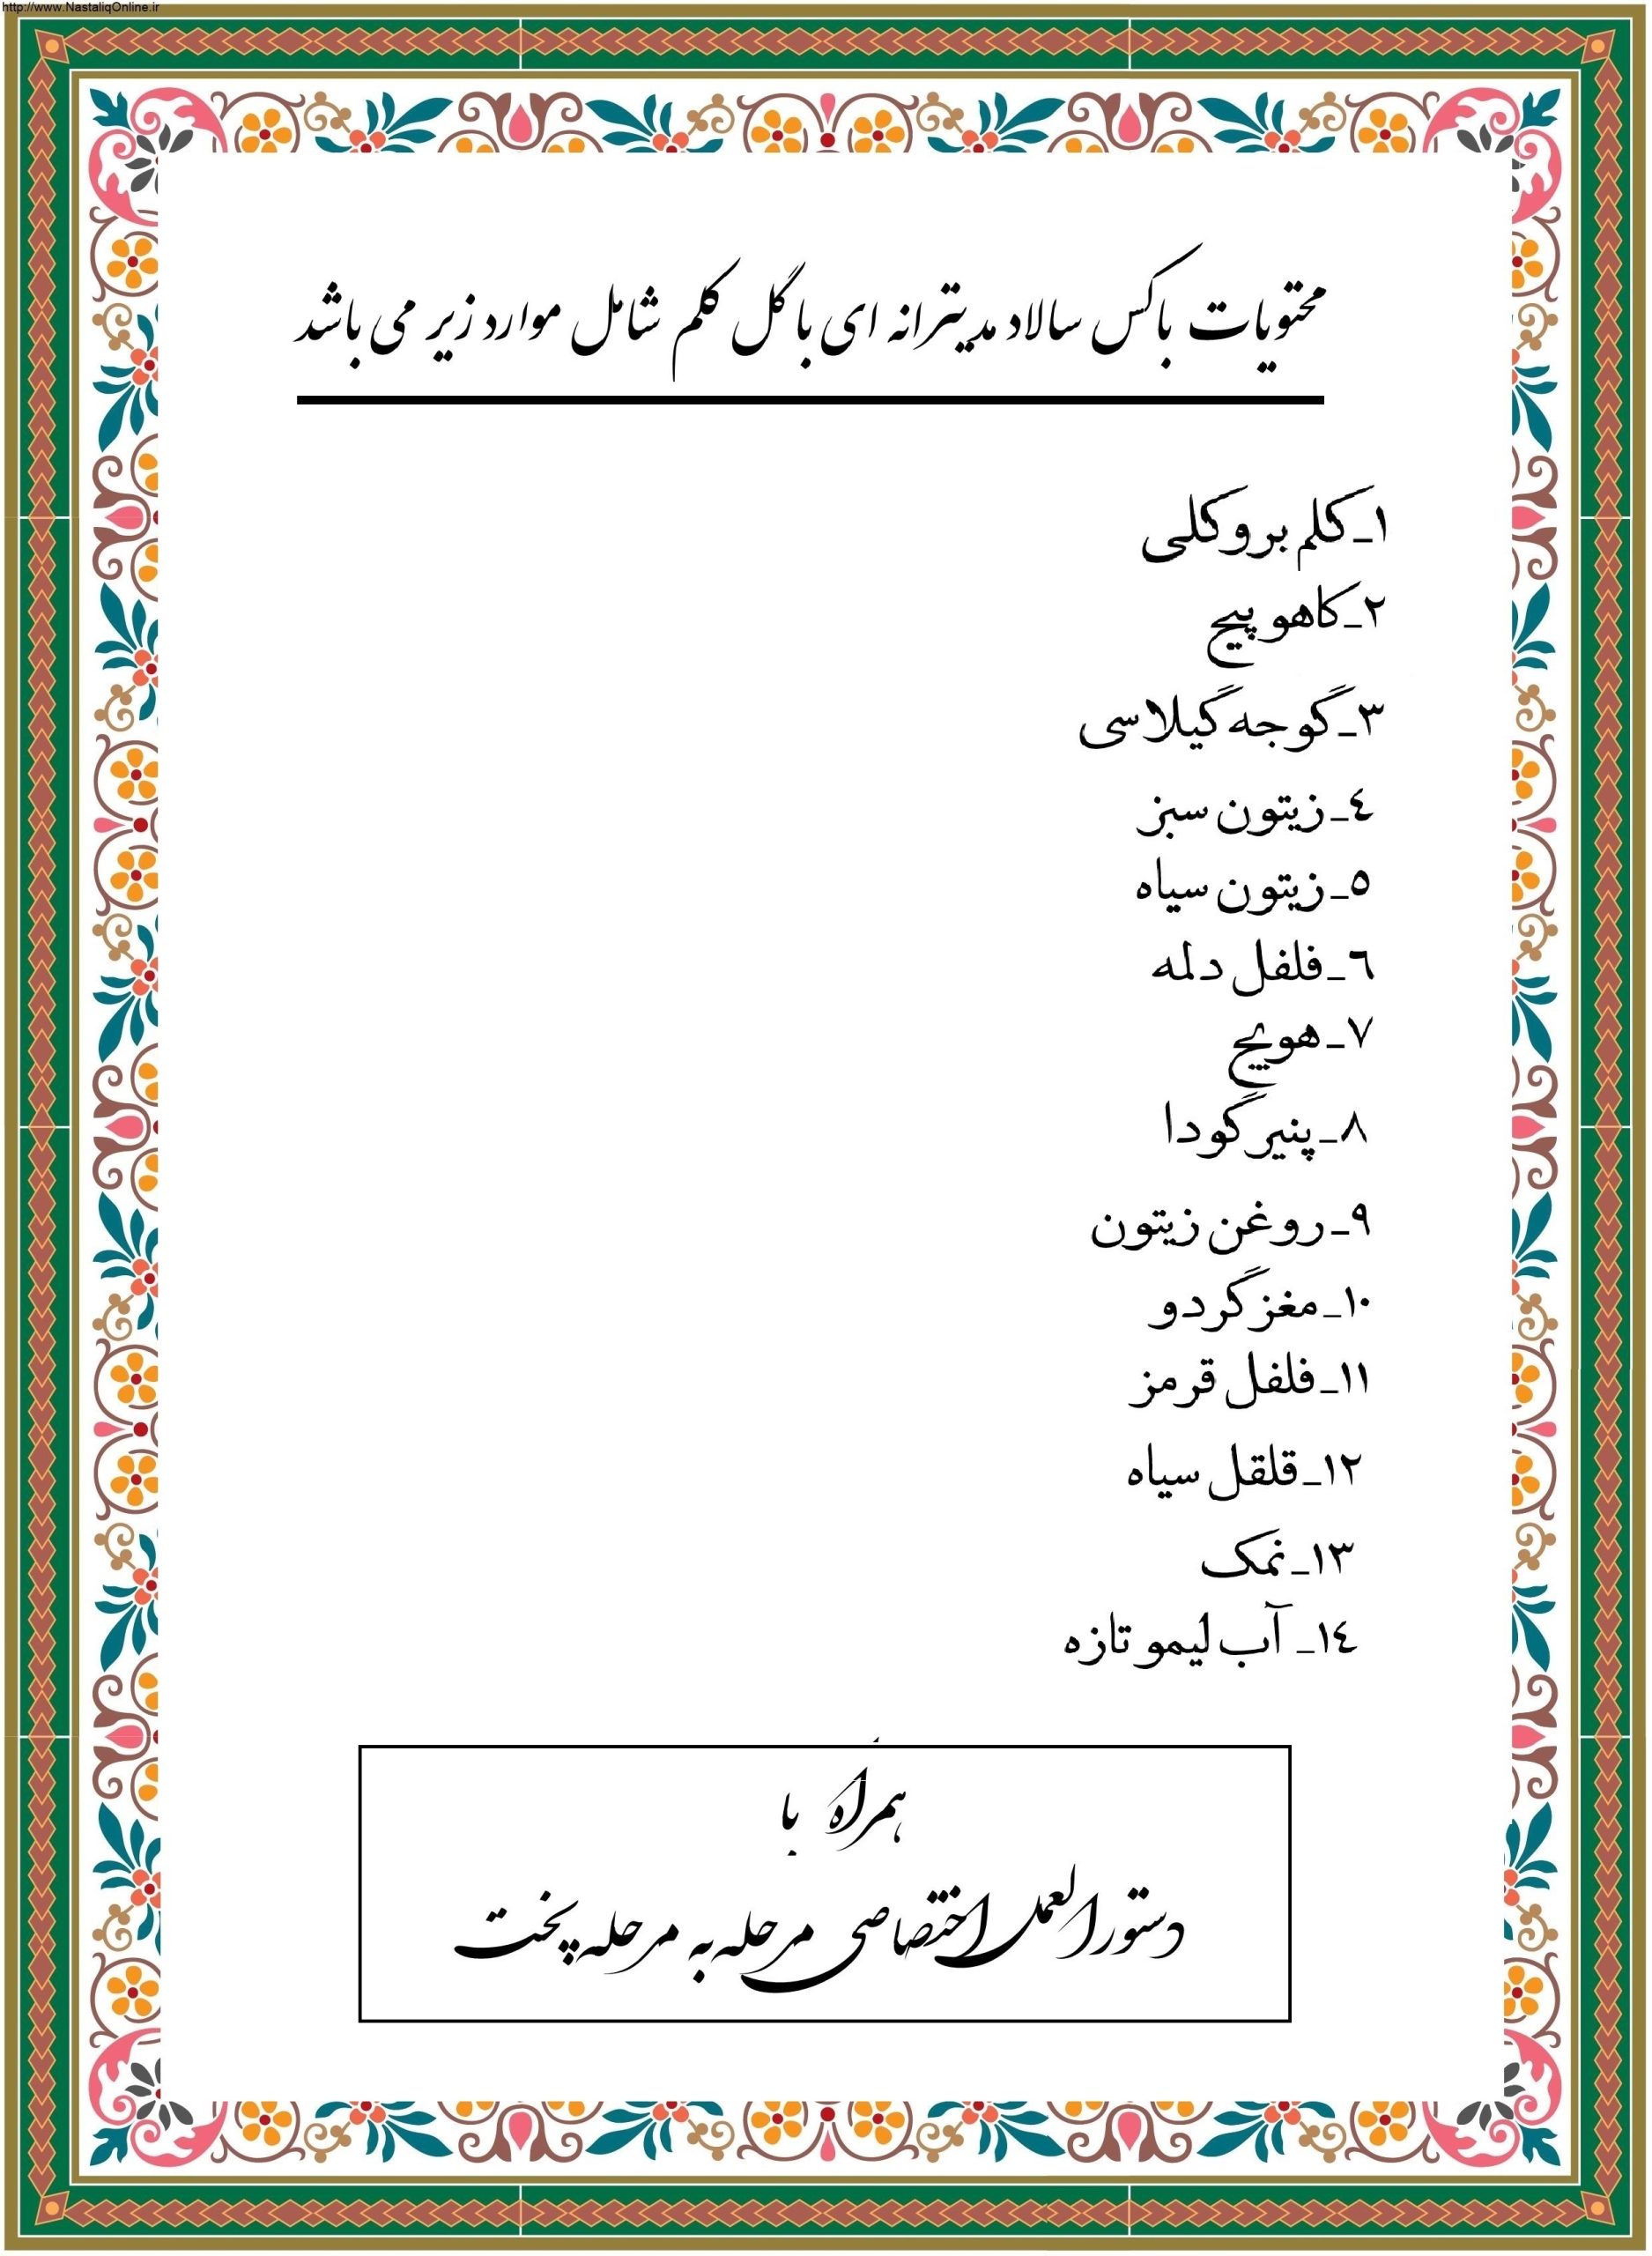 http://www.NastaliqOnline.ir
محتویات باکس سالاد مدیترانه ای با گل کلم شامل موارد زیر می باشد
۱_کلم بروکلی
۲_کاهو پیچ
۳_گوجه گیلاسی
٤_زیتون سبز
٥_زیتون سیاه
٦_فلفل دلمه
۷_هویج
۸_پنیر گودا
۹_روغن زیتون
۱۰_مغز گردو
۱۱_فلفل قرمز
۱۲_قلقل سیاه
۱۳_نمک
۱٤_ آب لیمو تازه
همراه با
دستورالعمل اختصاصی مرحله به مرحله پخت